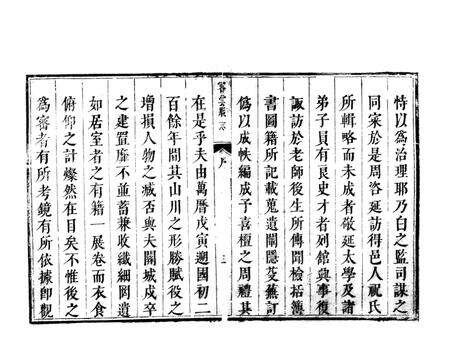 恃以爲治理耶乃白之監司謀之
同寀於是周咨延訪得邑人祝氏
所輯略而未成者敬延太學及諸
弟子員有良史才者列館與事復
諏訪於老師後生所傳聞檢括簿
書圖籍所記載蒐遺闡隱芟蕪訂
僞以成帙編成予喜檀之周禮其
序
二
在是乎夫由萬曆戊寅遡國初二
百餘年間其山川之形勝賦役之
增損人物之臧否與夫關城戍卒
之建置靡不並蓄兼收纖細罔遺
如居室者之有籍一展卷而衣食
俯仰之計燦然在目矣不惟後之
爲審者有所考鏡有所依據卽觀